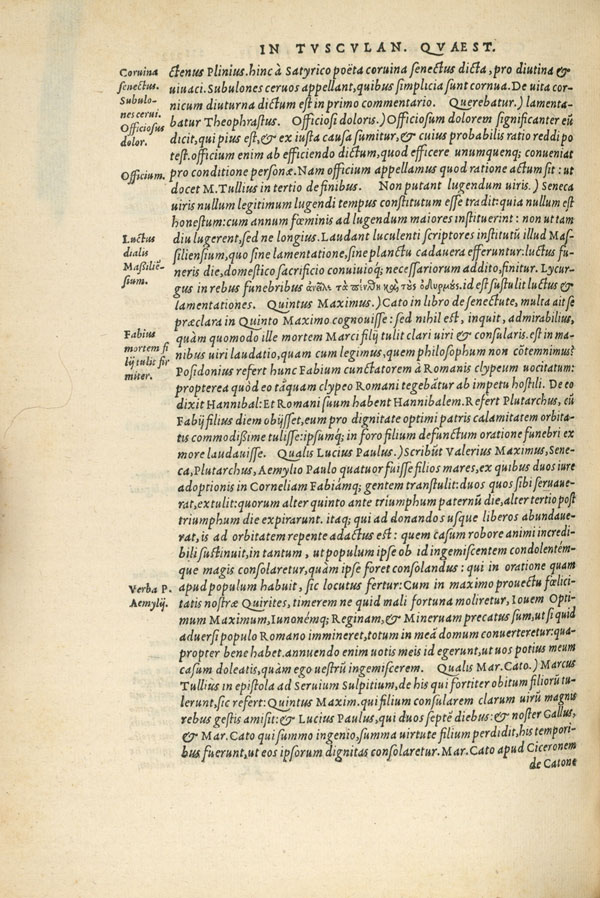 IN TVSCVLAN. QVAEST.
Coruina
senectus.
Subulo-
nes cerui.
Officiosus
dolor.
Officium.
Luctus
dialis
Maßiliē-
sium.
Fabius
mortem fi
lij tulit fir
miter.
Verba P.
Aemylij.
ctenus Plinius. hinc à Satyrico poëta coruina senectus dicta, pro diutina &
uiuaci. Subulones ceruos appellant, quibus simplicia sunt cornua. De uita cor-
nicum diuturna dictum est in primo commentario. Querebatur.) lamenta-
batur Theophrastus. Officiosi doloris.) Officiosum dolorem significanter eū
dicit, qui pius est, & ex iusta causa sumitur, & cuius probabilis ratio reddi po
test. officium enim ab efficiendo dictum, quod efficere unumquenq; conueniat
pro conditione personæ. Nam officium appellamus quod ratione actum sit: ut
docet M. Tullius in tertio de finibus. Non putant lugendum uiris.) Seneca
uiris nullum legitimum lugendi tempus constitutum esse tradit: quia nullum est
honestum: cum annum fœminis ad lugendum maiores instituerint: non ut tam
diu lugerent, sed ne longius. Laudant luculenti scriptores institutū illud Mas-
siliensium, quo sine lamentatione, sine planctu cadauera efferuntur: luctus fu-
neris die, domestico sacrificio conuiuioq; necessariorum addito, finitur. Lycur-
gus in rebus funebribus τὰ πένθη καὶ τοὺς ὀδυρμούς. id est sustulit luctus &
lamentationes. Quintus Maximus.) Cato in libro de senectute, multa ait se
præclara in Quinto Maximo cognouisse: sed nihil est, inquit, admirabilius,
quàm quomodo ille mortem Marci filij tulit clari uiri & consularis. est in ma-
nibus uiri laudatio, quam cum legimus, quem philosophum non cōtemnimus?
Posidonius refert hunc Fabium cunctatorem à Romanis clypeum uocitatum:
propterea quòd eo tāquam clypeo Romani tegebātur ab impetu hostili. De eo
dixit Hannibal: Et Romani suum habent Hannibalem. Refert Plutarchus, cū
Fabij filius diem obijsset, eum pro dignitate optimi patris calamitatem orbita-
tis commodißime tulisse: ipsumq; in foro filium defunctum oratione funebri ex
more laudauisse. Qualis Lucius Paulus.) Scribūt Valerius Maximus, Sene-
ca, Plutarchus, Aemylio Paulo quatuor fuisse filios mares, ex quibus duos iure
adoptionis in Corneliam Fabiámq; gentem transtulit: duos quos sibi seruaue-
rat, extulit: quorum alter quinto ante triumphum paternū die, alter tertio post
triumphum die expirarunt. itaq; qui ad donandos usque liberos abundaue-
rat, is ad orbitatem repente adactus est: quem casum robore animi incredi-
bili sustinuit, in tantum, ut populum ipse ob id ingemiscentem condolentém-
que magis consolaretur, quàm ipse foret consolandus: qui in oratione quam
apud populum habuit, sic locutus fertur: Cum in maximo prouectu fœlici-
tatis nostræ Quirites, timerem ne quid mali fortuna moliretur, Iouem Opti-
mum Maximum, Iunonémq; Reginam, & Mineruam precatus sum, ut si quid
aduersi populo Romano immineret, totum in meā domum conuerteretur: qua-
propter bene habet. annuendo enim uotis meis id egerunt, ut uos potius meum
casum doleatis, quàm ego uestrū ingemiscerem. Qualis Mar. Cato.) Marcus
Tullius in epistola ad Seruium Sulpitium, de his qui fortiter obitum filiorū tu-
lerunt, sic refert: Quintus Maxim. qui filium consularem clarum uirū magnis
rebus gestis amisit: & Lucius Paulus, qui duos septē diebus: & noster Gallus,
& Mar. Cato qui summo ingenio, summa uirtute filium perdidit, his tempori-
bus fuerunt, ut eos ipsorum dignitas consolaretur. Mar. Cato apud Ciceronem
de Catone